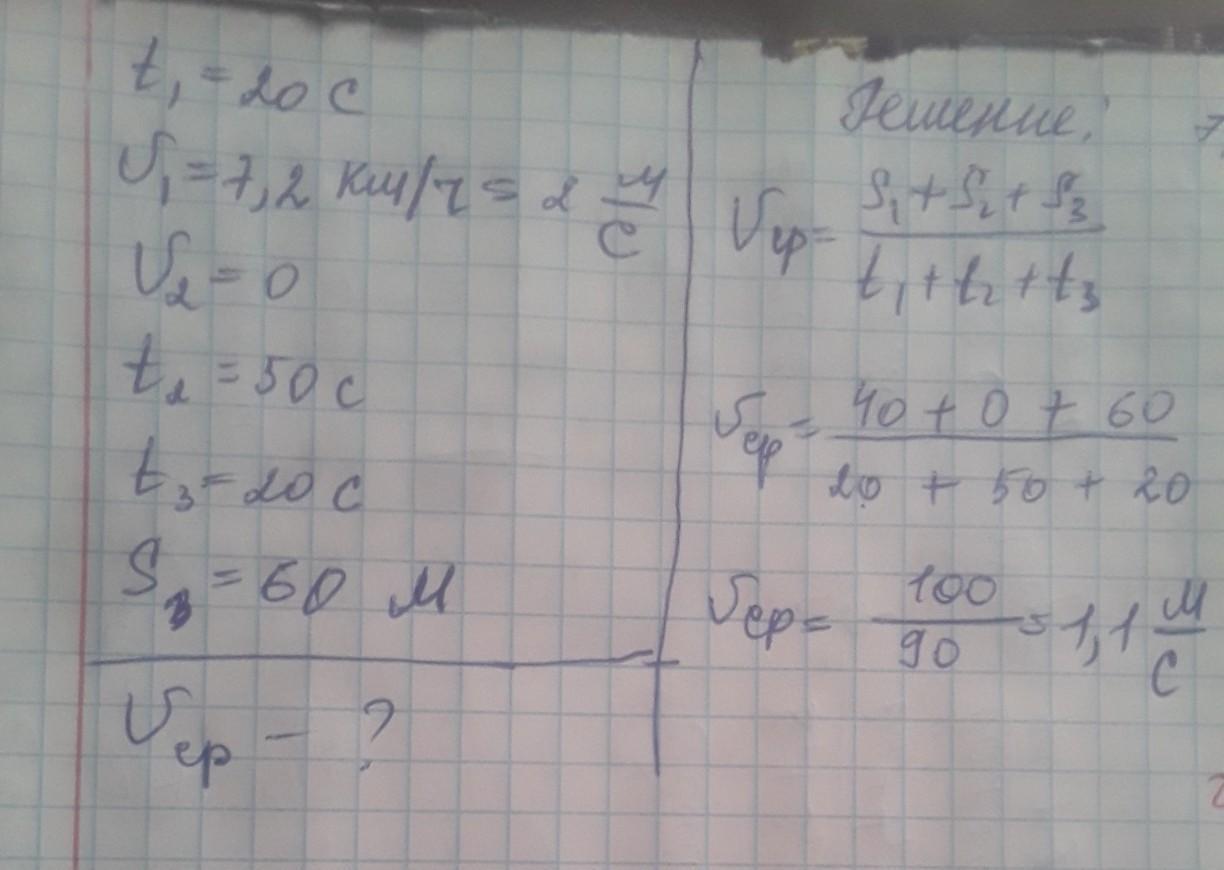 t₁ = 20 с
υ₁ = 7,2 км/ч = 2 м/с
υ₂ = 0
t₂ = 50 с
t₃ = 20 с
S₃ = 60 м
υср - ?
Решение:
υср = (S₁ + S₂ + S₃)/(t₁ + t₂ + t₃)
υср = (40 + 0 + 60)/(20 + 50 + 20)
υср = 100/90 = 1,1 м/с